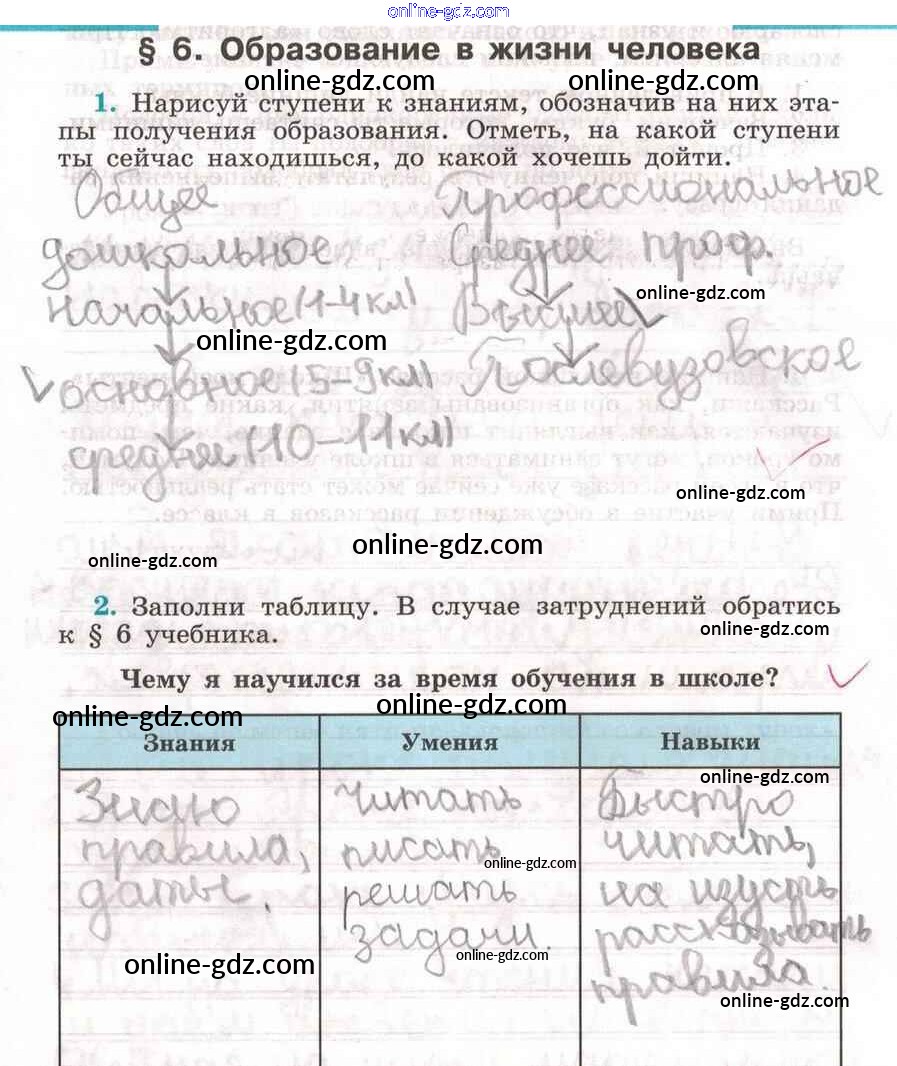 online-gdz.com
§ 6. Образование в жизни человека
online-gdz.com online-gdz.com
1. Нарисуй ступени к знаниям, обозначив на них эта-
пы получения образования. Отметь, на какой ступени
ты сейчас находишься, до какой хочешь дойти.
Общее Профессиональное
дошкольное Среднее проф.
online-gdz.com
начальное (1-4 кл) Высшее
online-gdz.com
основное (5-9 кл) Послевузовское
среднее (10-11 кл)
online-gdz.com
online-gdz.com
online-gdz.com
2. Заполни таблицу. В случае затруднений обратись
к § 6 учебника.
online-gdz.com
Чему я научился за время обучения в школе?
online-gdz.com online-gdz.com
Знания Умения Навыки
online-gdz.com
Знаю Читать Быстро
правила, писать читать,
online-gdz.com
даты. решать на изусть
задачи. рассказывать
online-gdz.com online-gdz.com
правила.
online-gdz.com